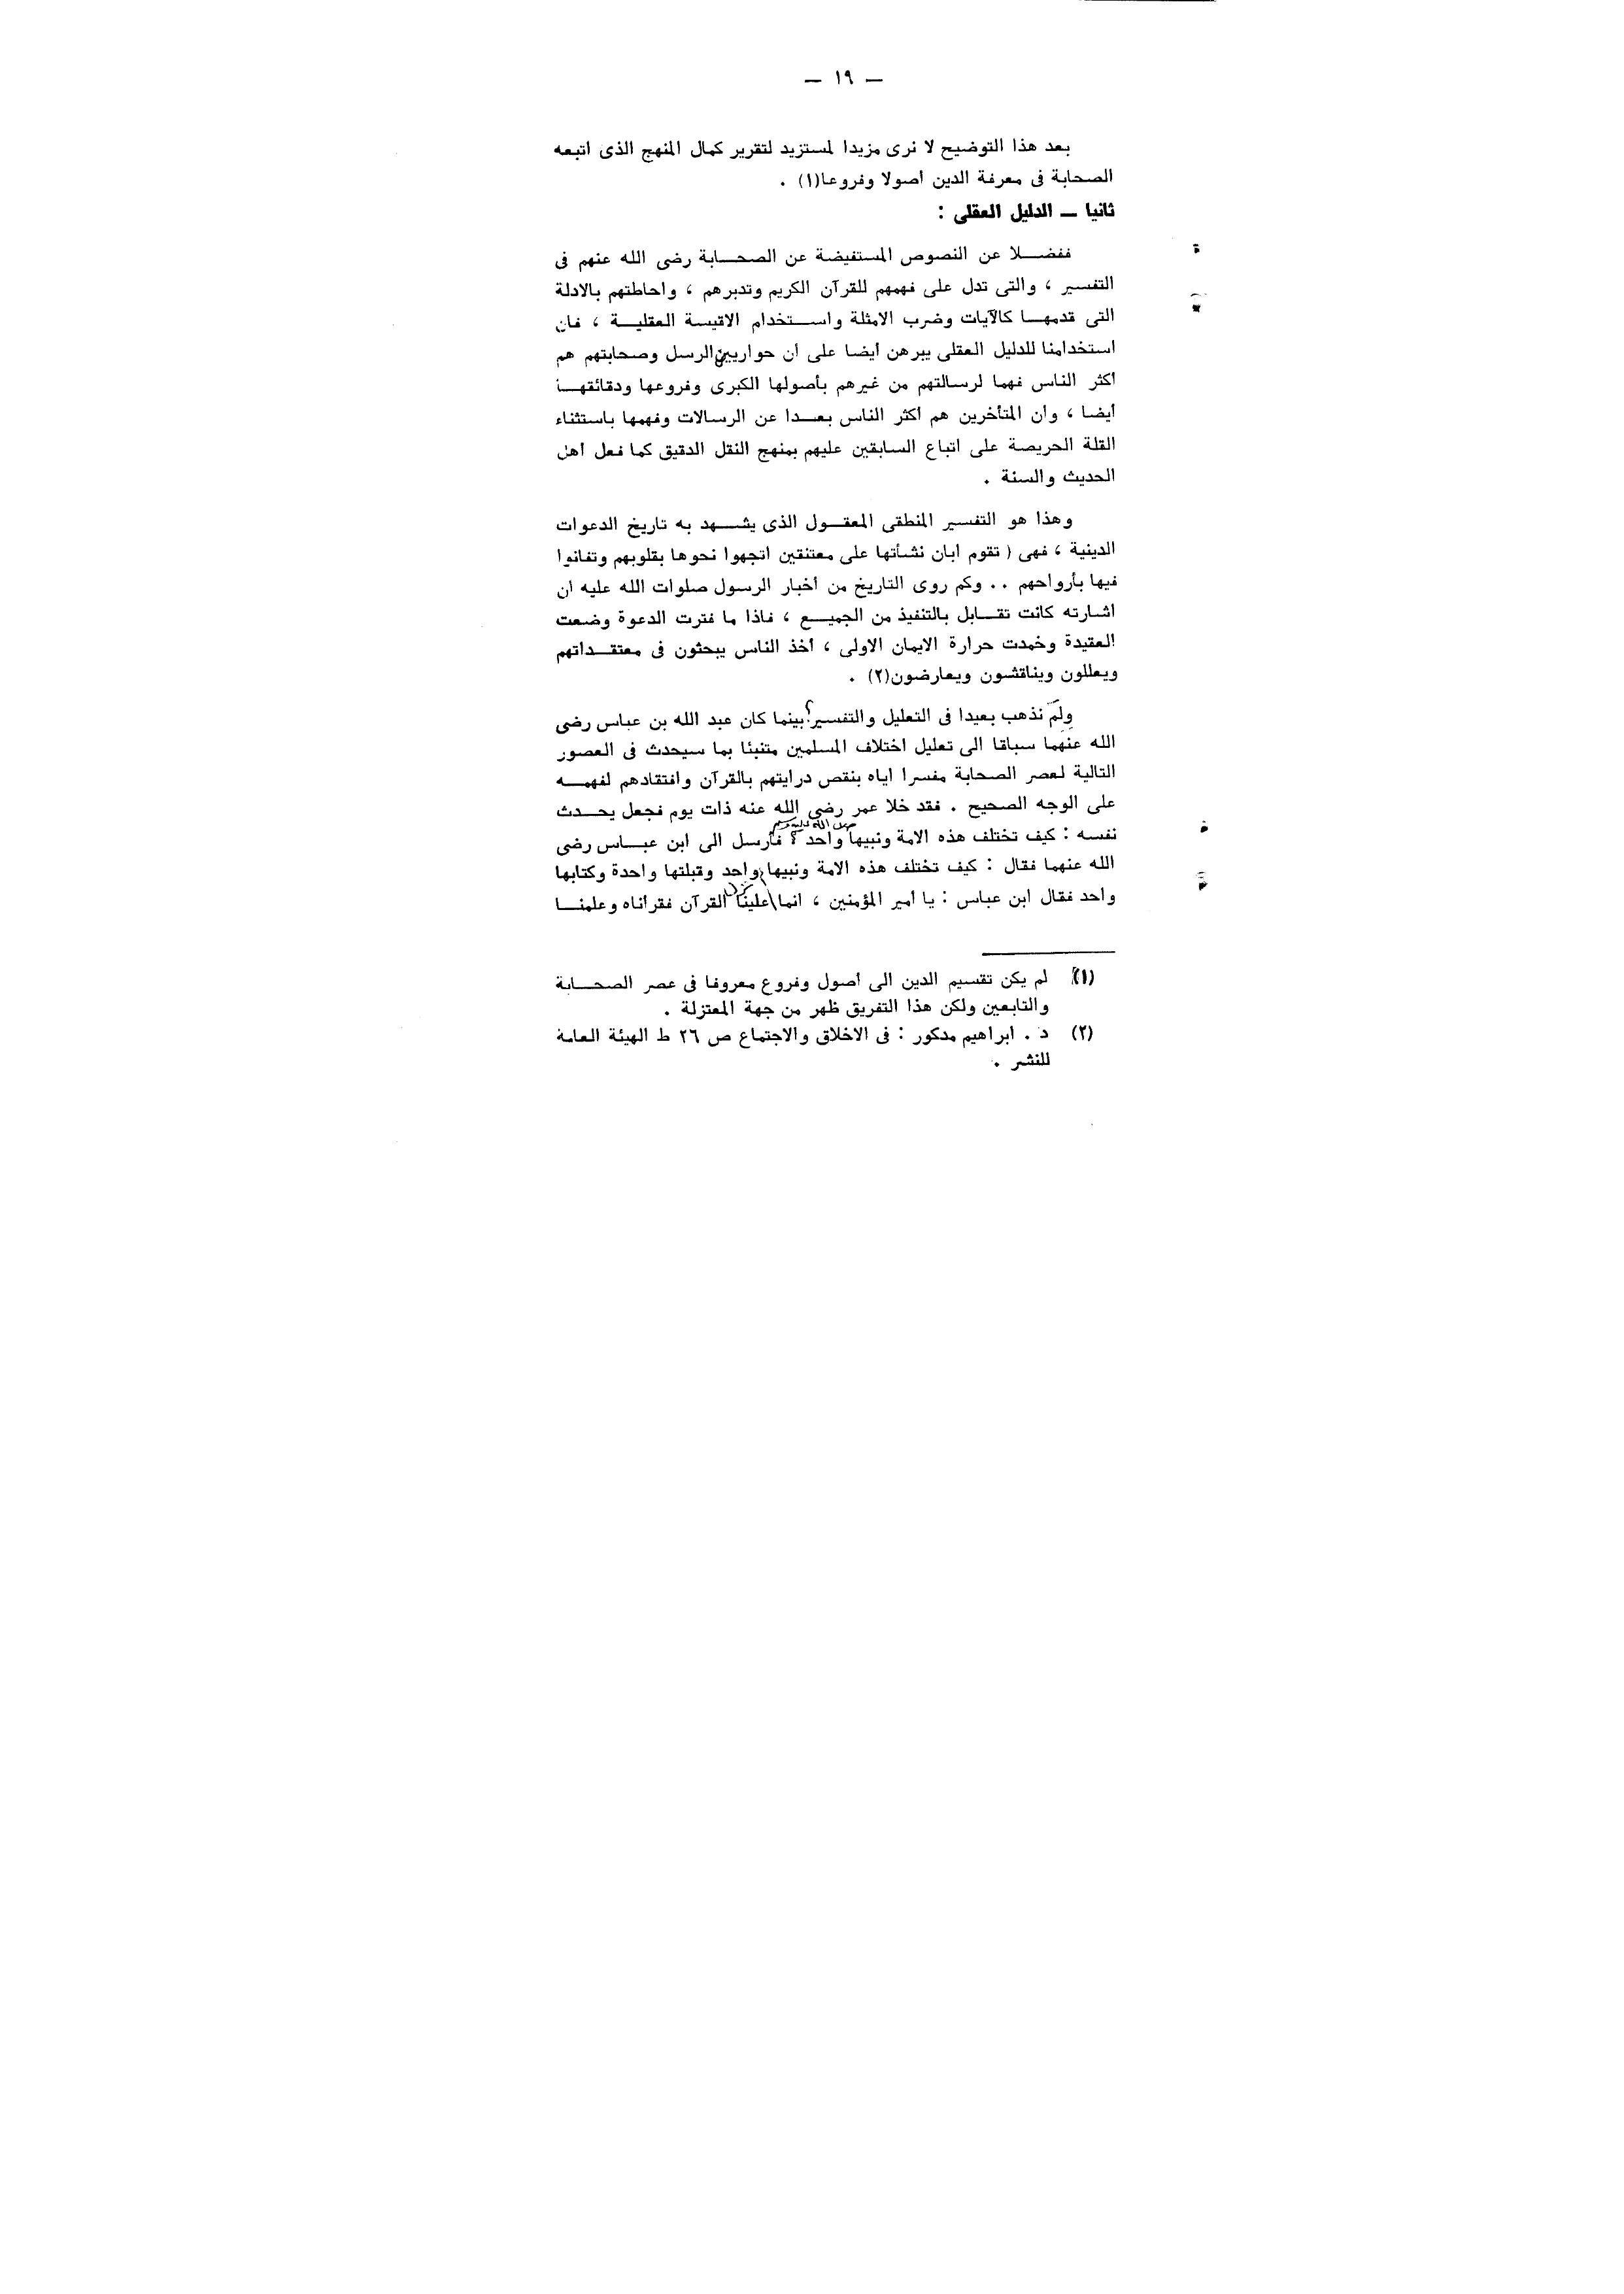 — ١٩ —
بعد هذا التوضيح لا نرى مزيدا لمستزيد لتقرير كمال المنهج الذى اتبعه
الصحابة فى معرفة الدين أصولا وفروعا(١) .
ثانيا — الدليل العقلى :
ففضلا عن النصوص المستفيضة عن الصحابة رضى الله عنهم فى
التفسير ، والتى تدل على فهمهم للقرآن الكريم وتدبرهم ، واحاطتهم بالادلة
التى قدمها كالآيات وضرب الامثلة واستخدام الاقيسة العقلية ، فان
استخدامنا للدليل العقلى يبرهن أيضا على ان حواريين الرسل وصحابتهم هم
اكثر الناس فهما لرسالتهم من غيرهم بأصولها الكبرى وفروعها ودقائقها
أيضا ، وأن المتأخرين هم أكثر الناس بعدا عن الرسالات وفهمها باستثناء
القلة الحريصة على اتباع السابقين عليهم بمنهج النقل الدقيق كما فعل أهل
الحديث والسنة .
وهذا هو التفسير المنطقى المعقول الذى يشهد به تاريخ الدعوات
الدينية ، فهى ( تقوم ابان نشأتها على معتنقين اتجهوا نحوها بقلوبهم وتفانوا
فيها بأرواحهم . . وكم روى التاريخ من أخبار الرسول صلوات الله عليه ان
اشارته كانت تقابل بالتنفيذ من الجميع ، فاذا ما فترت الدعوة وضعت
العقيدة وخمدت حرارة الايمان الاولى ، أخذ الناس يبحثون فى معتقداتهم
ويعللون ويناقشون ويعارضون(٢) .
ولِمَ نذهب بعيدا فى التعليل والتفسير؟ بينما كان عبد الله بن عباس رضى
الله عنهما سباقا الى تعليل اختلاف المسلمين متنبئا بما سيحدث فى العصور
التالية لعصر الصحابة مفسرا اياه بنقص درايتهم بالقرآن وافتقادهم لفهمه
على الوجه الصحيح . فقد خلا عمر رضى الله عنه ذات يوم فجعل يحدث
صلى الله عليه وسلم
نفسه : كيف تختلف هذه الامة ونبيها واحد ؟ فأرسل الى ابن عباس رضى
الله عنهما فقال : كيف تختلف هذه الامة ونبيها واحد وقبلتها واحدة وكتابها
واحد فقال ابن عباس : يا أمير المؤمنين ، انما علينا القرآن فقرأناه وعلمنا
(١) لم يكن تقسيم الدين الى أصول وفروع معروفا فى عصر الصحابة
والتابعين ولكن هذا التفريق ظهر من جهة المعتزلة .
(٢) د . ابراهيم مدكور : فى الاخلاق والاجتماع ص ٢٦ ط الهيئة العامة
للنشر .